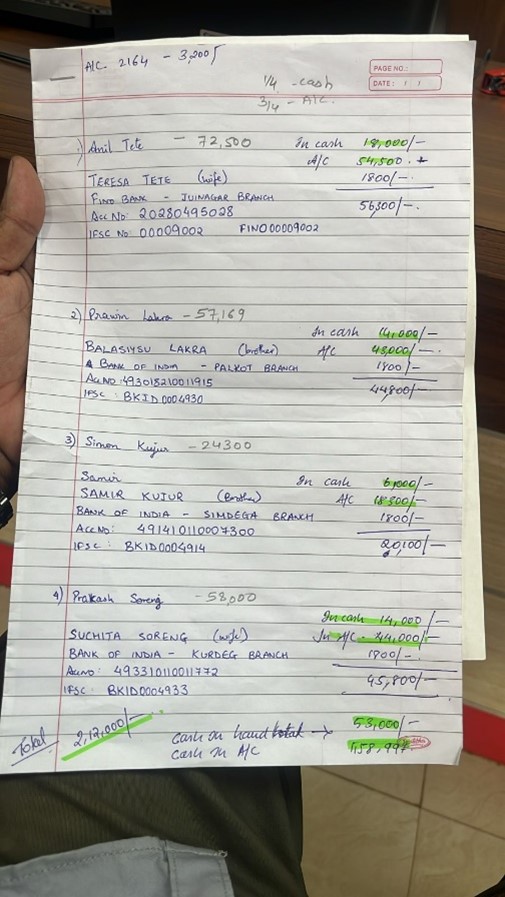 A/C. 2164 - 3,200/
PAGE NO.:
DATE: / /
1/4 - cash
3/4 - A/C.
1) Anil Tete - 72,500 In cash 18,000/-
A/C 54,500 . +
TERESA TETE (wife) 1800/-
FINO BANK - JUINAGAR BRANCH 56300/-.
Acc No: 20280495028
IFSC No 00009002 FINO00009002
2) Prawin Lakra - 57,169
In cash 14,000/-
BALASIYSU LAKRA (brother) A/C 43,000/-.
BANK OF INDIA - PALKOT BRANCH 1800/-
Acc No: 493018210011915 44,800/-
IFSC : BKID0004930
3) Simon Kujur - 24300
Samir In cash 6,000/-
SAMIR KUJUR (Brother) A/C 18300/-
BANK OF INDIA - SIMDEGA BRANCH 1800/-
Acc No: 491410110007300 20,100/-
IFSC : BKID0004914
4) Prakash Soreng - 58,000
In cash 14,000/-
SUCHITA SORENG (wife) In A/C - 44,000/-
BANK OF INDIA - KURDEG BRANCH 1800/-.
Acc No: 493310110011772 45,800/-
IFSC : BKID0004933
Total 2,12,000/- cash in hand total → 53,000/-
cash in A/C